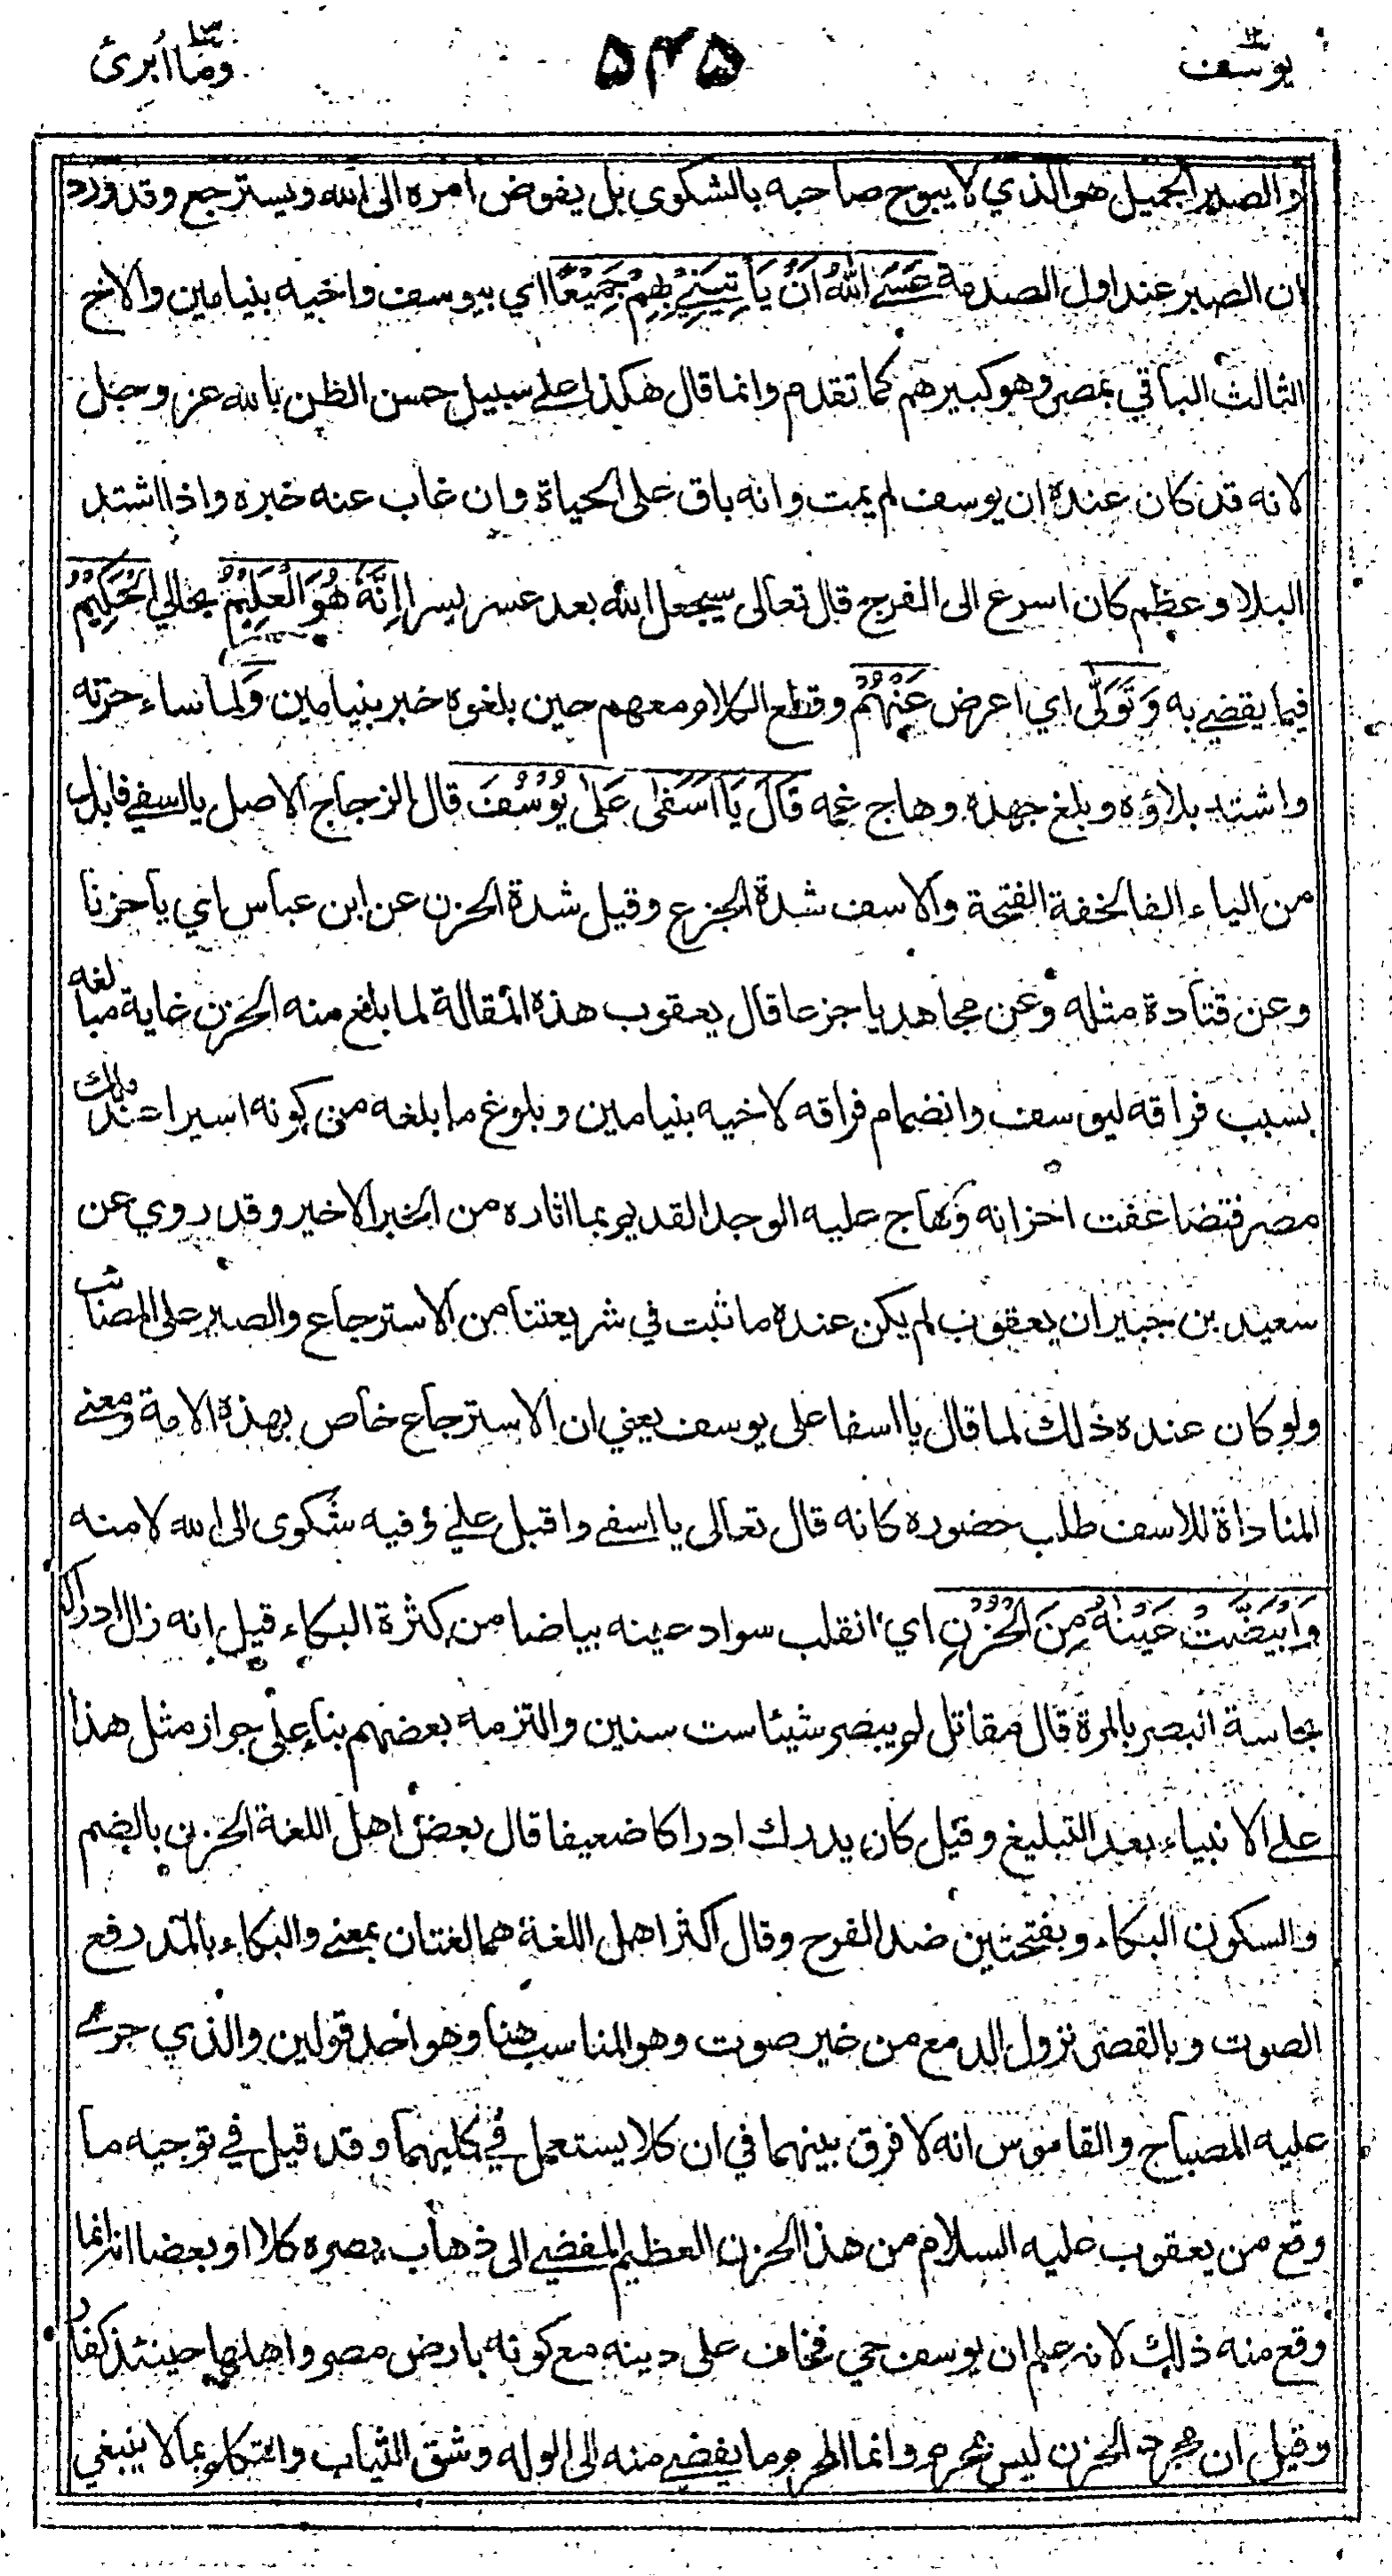 يوسف ١٢
٥٤٥
وما ابرئ ١٣
والصبر الجميل هو الذي لا يبوح صاحبه بالشكوى بل يفوض امره الى الله ويسترجع وقد ورد
ان الصبر عند اول الصدمة عَسَى اللهُ اَنْ يَأْتِيَنِيْ بِهِمْ جَمِيْعًا اي بيوسف واخيه بنيامين والاخ
الثالث الباقي بمصر وهو كبيرهم كما تقدم وانما قال هكذا على سبيل حسن الظن بالله عز وجل
لانه قد كان عنده ان يوسف لم يمت وانه باق على الحياة وان غاب عنه خبره واذا اشتد
البلاء وعظم كان اسرع الى الفرج قال تعالى سيجعل الله بعد عسر يسرا اِنَّهُ هُوَ الْعَلِيْمُ بحالي الْحَكِيْمُ
فيما يقضي به وَتَوَلّٰى اي اعرض عَنْهُمْ وقطع الكلام معهم حين بلغوه خبر بنيامين ولما ساء حزنه
واشتد بلاؤه وبلغ جهده وهاج غمه قَالَ يَا اَسَفٰى عَلٰى يُوْسُفَ قال الزجاج الاصل يا اسفي فابدل
من الياء الفا لخفة الفتحة والاسف شدة الجزع وقيل شدة الحزن عن ابن عباس اي يا حزنا
وعن قتادة مثله وعن مجاهد يا جزعا قال يعقوب هذه المقالة لما بلغ منه الحزن غاية مبالغه
بسبب فراقه ليوسف وانضمام فراقه لاخيه بنيامين وبلوغ ما بلغه من كونه اسيرا عند ملك
مصر فتضاعفت احزانه وهاج عليه الوجد القديم بما اثاره من الخبر الاخير وقد روي عن
سعيد بن جبير ان يعقوب لم يكن عنده ما ثبت في شريعتنا من الاسترجاع والصبر على المصائب
ولو كان عنده ذلك لما قال يا اسفا على يوسف يعني ان الاسترجاع خاص بهذه الامة ومعنى
المناداة للاسف طلب حضوره كانه قال تعالى يا اسفي واقبل علي وفيه شكوى الى الله لا منه
وَابْيَضَّتْ عَيْنٰهُ مِنَ الْحُزْنِ اي انقلب سواد عينه بياضا من كثرة البكاء قيل انه زال ادراكه
بحاسة البصر بالمرة قال مقاتل لم يبصر شيئا ست سنين والتزمه بعضهم بناء على جواز مثل هذا
على الانبياء بعد التبليغ وقيل كان يدرك ادراكا ضعيفا قال بعض اهل اللغة الحزن بالضم
والسكون البكاء وبفتحتين ضد الفرح وقال اكثر اهل اللغة هما لغتان بمعنى والبكاء بالمد رفع
الصوت وبالقصر نزول الدمع من غير صوت وهو المناسب هنا وهو احد قولين والذي جرى
عليه المصباح والقاموس انه لا فرق بينهما في ان كلا يستعمل في كليهما وقد قيل في توجيه ما
وقع من يعقوب عليه السلام من هذا الحزن العظيم المفضي الى ذهاب بصره كلا او بعضا انه انما
وقع منه ذلك لانه علم ان يوسف حي فخاف على دينه مع كونه بارض مصر واهلها حينئذ كفار
وقيل ان مجرد الحزن ليس بمحرم وانما المحرم ما يفضي منه الى الوله وشق الثياب والتكلم بما لا ينبغي